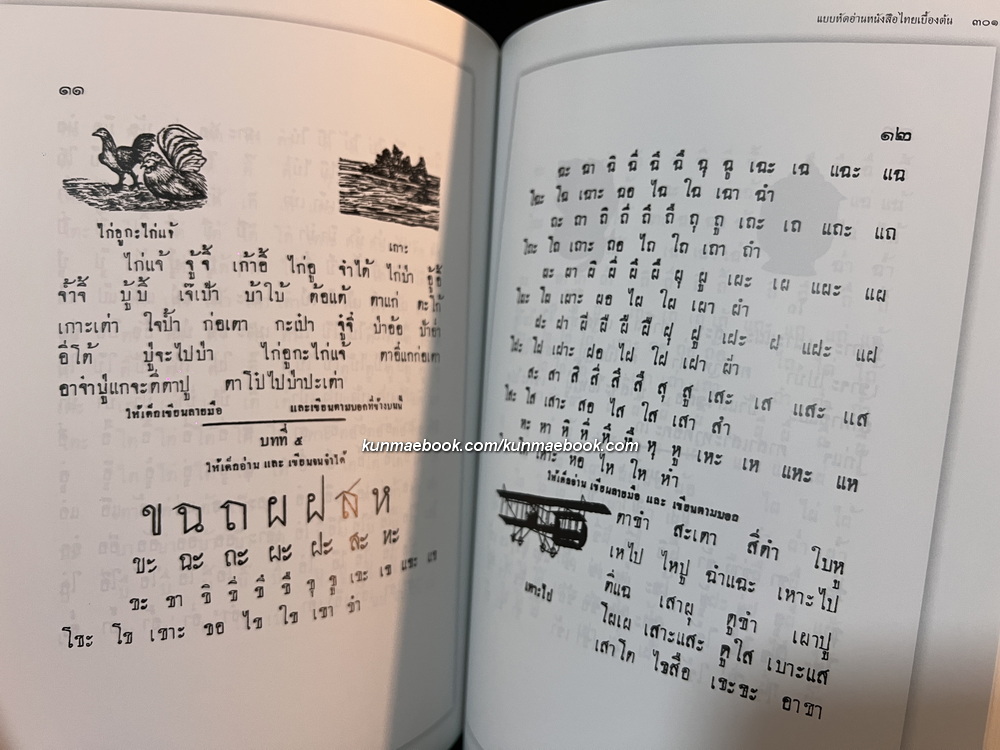 ๑๑
ไก่อูกะไก่แจ้
เกาะ
ไก่แจ้ จู้จี้ เก้าอี้ ไก่อู จำได้ ไก่ป่า อู้อี้
จ้ำจี้ บู้บี้ เจ๊เป้า บ้าใบ้ ต้อแต้ ตาแก่ ตะไก้
เกาะเต่า ใจป้ำ ก่อเตา กะเป๋า จู๋จี๋ ป่าอ้อ
อีโต้ ปู่จะไปป่า ไก่อูกะไก่แจ้ ตาอี๋แกก่อเตา
อาจ๋าปู่แกจะตีตาปู ตาโป๋ไปป่าปะเต่า
ให้เด็กเขียนลายมือ และเขียนตามบอกที่ข้างบนนี้
บทที่ ๕
ให้เด็กอ่าน และ เขียนจนจำได้
ข ฉ ถ ผ ฝ ส ห
ขะ ฉะ ถะ ผะ ฝะ สะ หะ
ขะ ขา ขิ ขี่ ขึ ขื ขุ ขู เขะ เข แขะ แข
โขะ โข เขาะ ขอ ไข ใข เขา ขำ
แบบหัดอ่านหนังสือไทยเบื้องต้น ๓๐๑
๑๒
ฉะ ฉา ฉิ ฉี ฉึ ฉื ฉุ ฉู เฉะ เฉ แฉะ แฉ
โฉะ โฉ เฉาะ ฉอ ไฉ ใฉ เฉา ฉำ
ถะ ถา ถิ ถี ถึ ถื ถุ ถู เถะ เถ แถะ แถ
โถะ โถ เถาะ ถอ ไถ ใถ เถา ถำ
ผะ ผา ผิ ผี ผึ ผื ผุ ผู เผะ เผ แผะ แผ
โผะ โผ เผาะ ผอ ไผ ใผ เผา ผำ
ฝะ ฝา ฝิ ฝี ฝึ ฝื ฝุ ฝู เฝะ ฝ แฝะ แฝ
โฝะ โฝ เฝาะ ฝอ ไฝ ใฝ เฝา ฝำ
สะ สา สิ สี สึ สื สุ สู เสะ เส แสะ แส
โสะ โส เสาะ สอ ไส ใส เสา สำ
หะ หา หิ หี หึ หื หุ หู เหะ เห แหะ แห
เหาะ หอ ไห ให หำ
ให้เด็กอ่าน เขียนลายมือ และ เขียนตามบอก
เหาะไป
ตาขำ สะเดา สีดำ ใบหู
เหไป ไหปู ฉำแฉะ เหาะไป
ตีแฉ เสาผุ ดูขำ เผาปู
โผเผ เสาะแสะ ดูใส เบาะแส
เสาโต ไขสือ เขะขะ อาขา
kunmaebook.com/kunmaebook.com